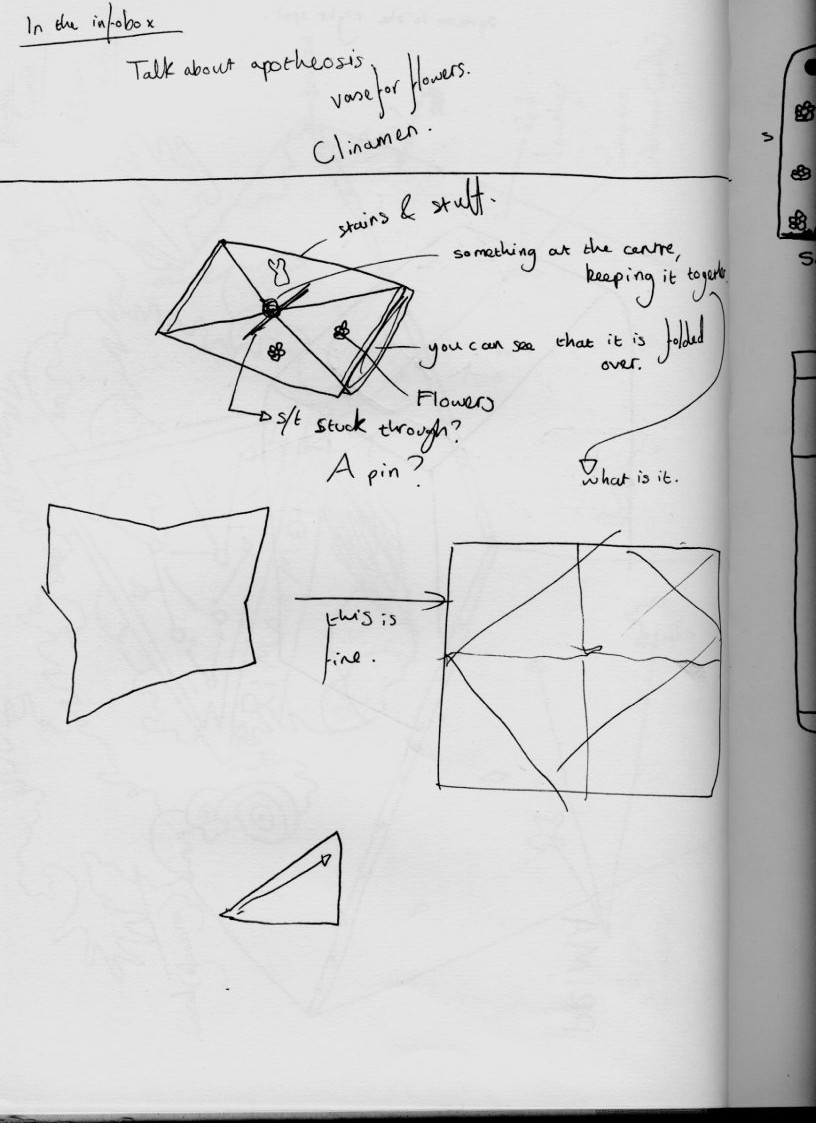 In the infobox
Talk about apotheosis.
vase for flowers.
Clinamen.
stains & stuff.
something at the centre,
keeping it together
you can see that it is folded
over.
Flowers
s/t stuck through?
A pin?
what is it.
this is
fine.
s
S